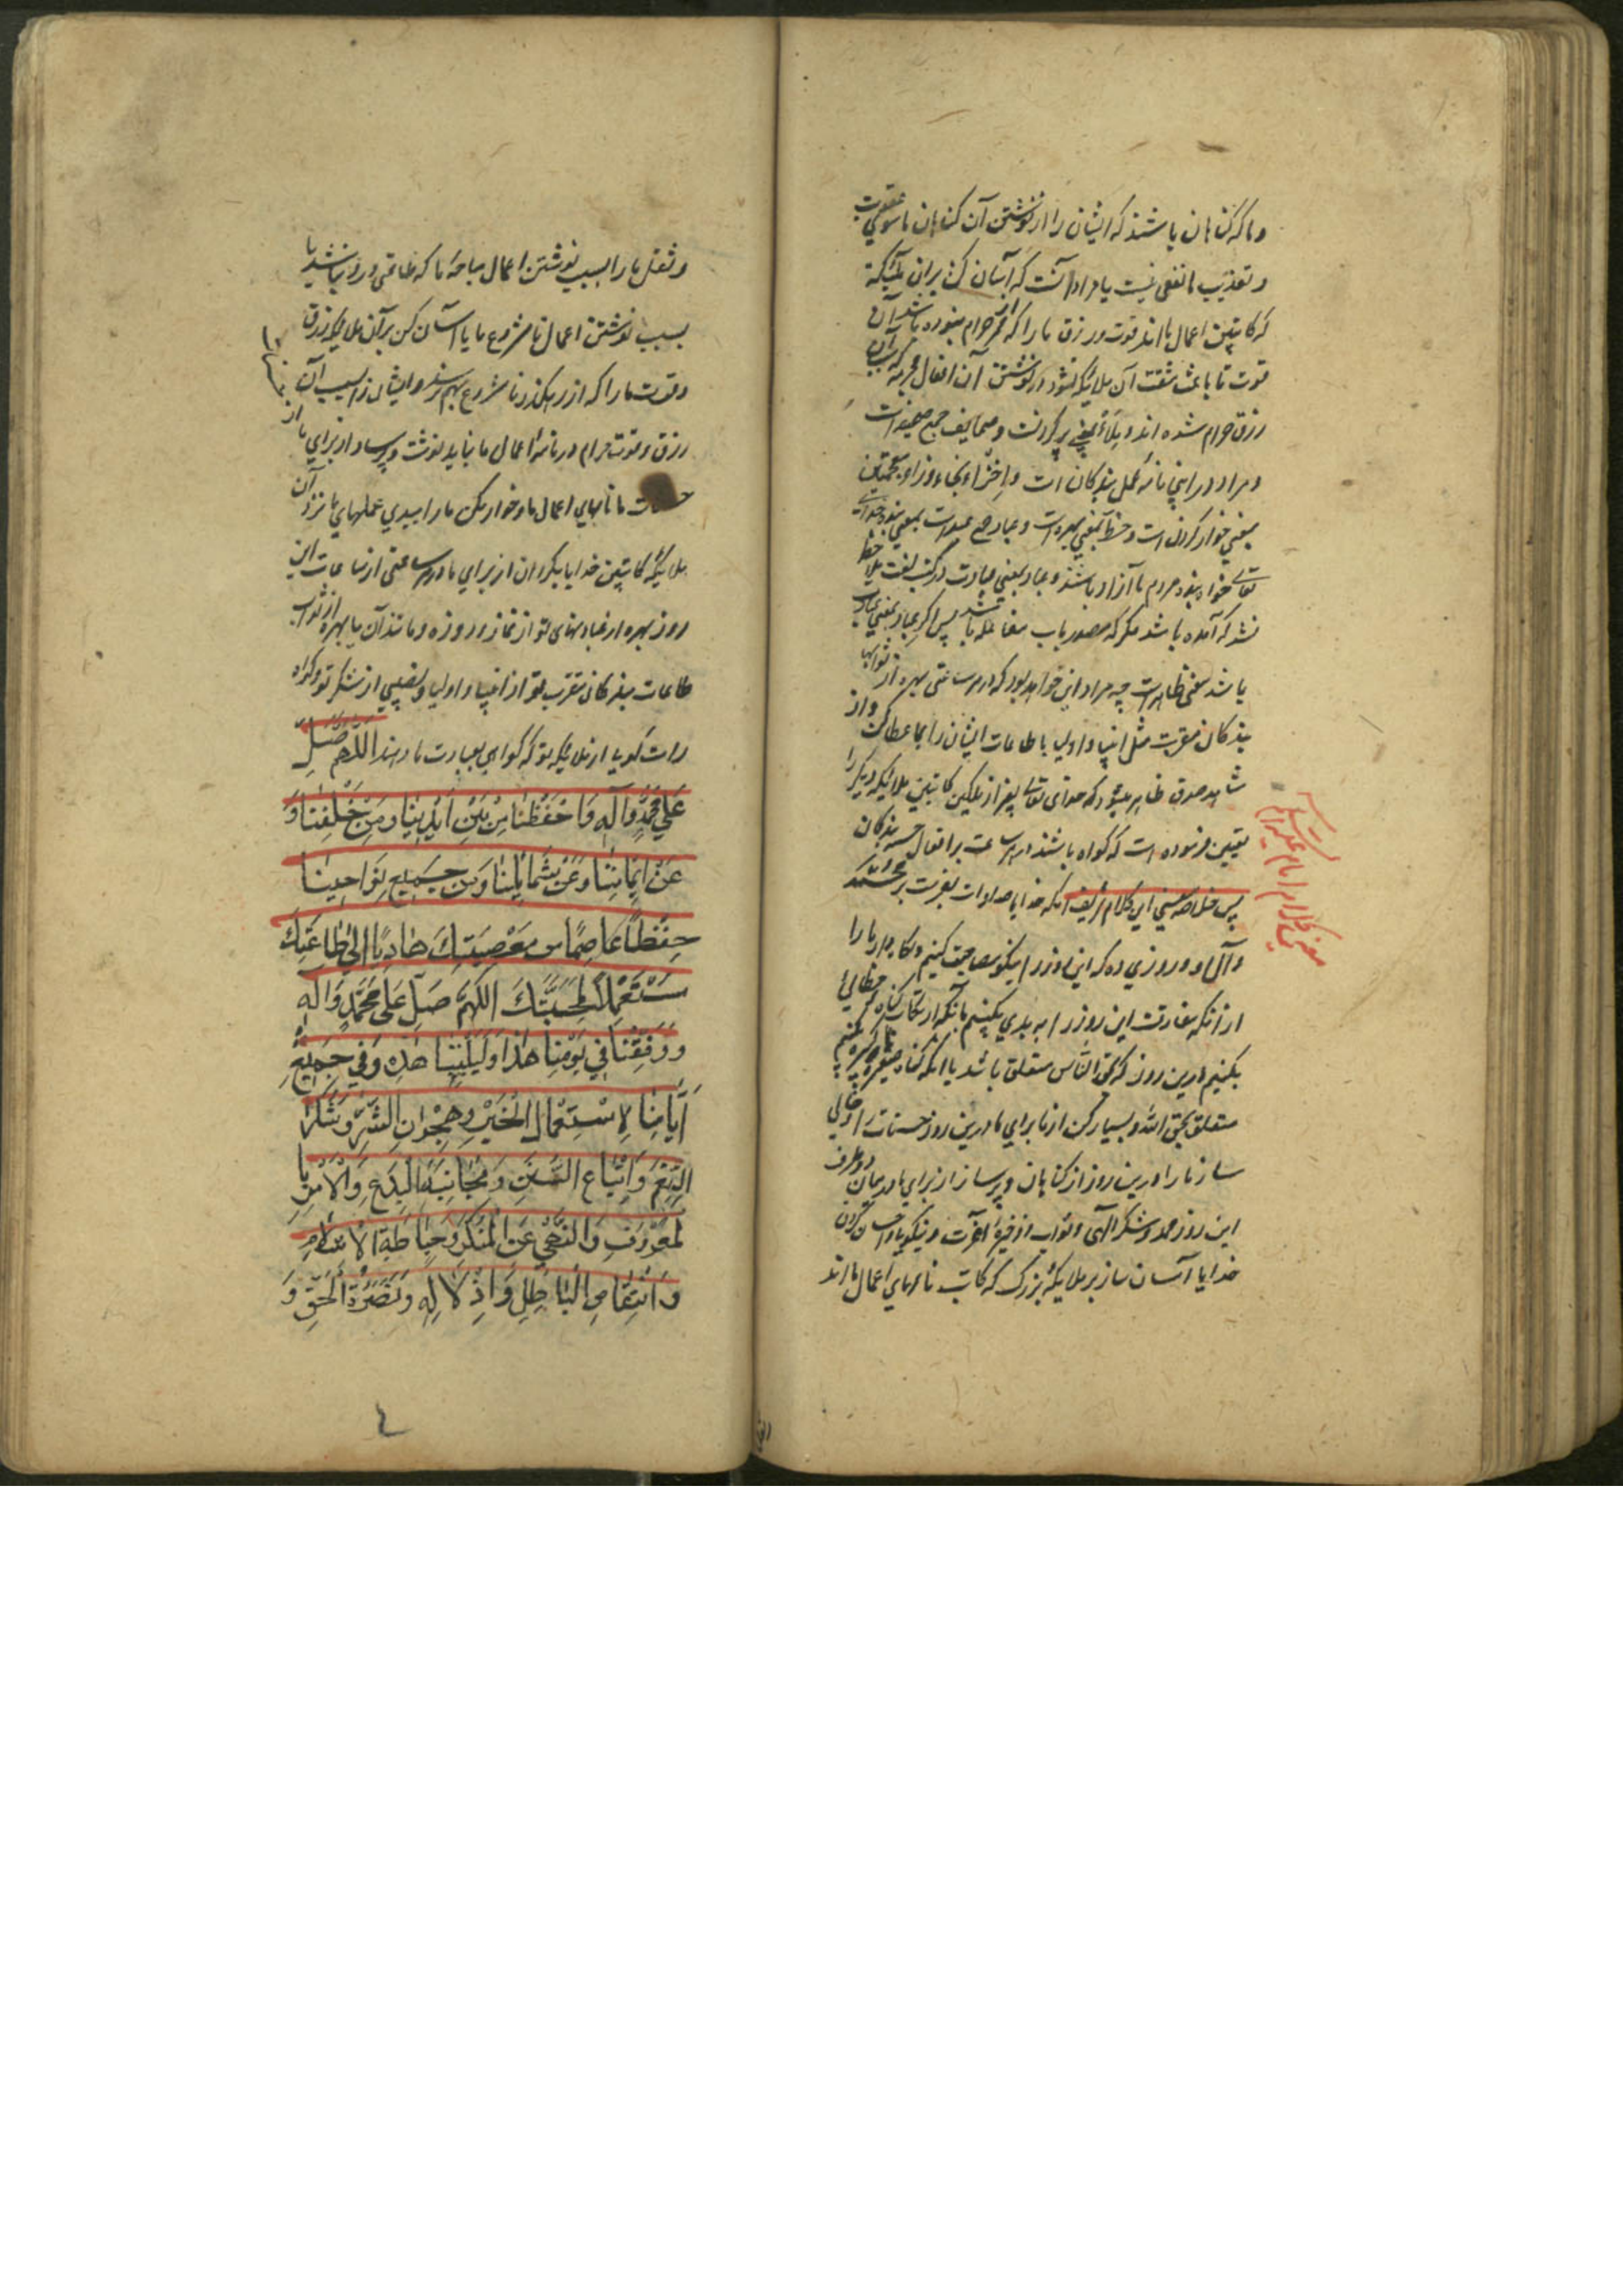 و ما که کناهان باشند که ایشان را از نوشتن آن کناهان ما سوی عقوبت
و تعذیب ما نفعی نیست یا مراد آنست که آسان کن بر آن ملایکه
که کاتبین اعمال ما اند قوت و رزق ما را که از ممر حرام نبوده باشد
قوت تا باعث مشقت آن ملایکه نشود در نوشتن آن افعال محرمه که بسبب آن
رزق حرام شده اند و یملاء بمعنی پر کردنست و صحایف جمع صحیفه است
و مراد در اینجا نامه عمل بندکان است و اخزاء بخاء و زاء معجمتین
بمعنی خوار کردن است و حظ بمعنی بهره است و عباد جمع عبد است بمعنی بنده خدای
تعالی خواه بنده مردم یا آزاد باشند و عباد بمعنی عبادت در کتب لغت ملاحظه
نشد که آمده باشد مگر که مصدر باب مفاعله باشد پس اکر عباد بمعنی عبادت
باشد معنی ظاهر است چه مراد این خواهد بود که در هر ساعتی بهره از ثوابها
بندکان مقربت مثل انبیا و اولیا با طاعات ایشان را بما عطا کن و از
شاهد صدق ظاهر میشود که خدای تعالی بغیر از ملکین کاتبین ملایکه دیگر را
تعیین فرموده است که کواه باشند در هر ساعت بر افعال حسنه بندکان
پس خلاصه معنی این کلام شریف آنکه خدایا صلوات بفرست بر محمد
و آل او و روزی ده که این روز را نیکو مصاحبت کنیم و نکاه دار ما را
از آنکه مفارقت این روز را به بدی بکنیم بآنکه ارتکاب کناه خطائی
بکنیم درین روز که بحق الناس متعلق باشد یا آنکه کناه صغیره و کبیره بکنیم
متعلق بحق الله و بسیار کن از برای ما درین روز حسنات را و خالی
ساز ما را درین روز از کناهان و پر ساز از برای ما در میان دو طرف
این روز حمد و شکر الهی و ثواب و ذخیره آخرت و نیکوی و احسان کردن
خدایا آسان ساز بر ملایکه بزرک که کاتب نامهای اعمال ما اند
معنی کلام امام علیه السلام
و ثقل ما را بسبب نوشتن اعمال مباحه ما که طاعتی در او نباشد یا
بسبب نوشتن اعمال نامشروع ما یا آسان کن بر آن ملایکه رزق
و قوت ما را که از رهکذر نامشروع بهم نرسد و ایشان را بسبب آن
رزق و قوت حرام در نامه اعمال ما نباید نوشت و پر ساز از برای ما از
حسنات ما نامهای اعمال ما و خوار مکن ما را ببدی عملهای ما نزد آن
ملایکه کاتبین خدایا بکردان از برای ما در هر ساعتی از ساعات این
روز بهره از عبادتهای تو از نماز و روزه و مانند آن یا بهره از ثواب
طاعات بندکان مقرب تو از انبیا و اولیا و نصیبی از شکر تو و کواه
راست کویی از ملایکه تو که کواهی بعبادت ما دهند اللّهم صَلِّ
عَلی مُحَمَّدٍ وَآلِهِ وَاحْفَظْنا مِنْ بَیْنِ اَیْدِینا وَمِنْ خَلْفِنا وَ
عَنْ اَیْمانِنا وَعَنْ شَمائِلِنا وَمِنْ جَمیعِ نَواحینا
حِفْظاً عاصِمًا من مَعْصِیَتِكَ هادِیًا اِلی طاعَتِكَ
مُسْتَعْمِلاً لِمَحَبَّتِكَ اللهُمَّ صَلِّ عَلی مُحَمَّدٍ وَآلِهِ
وَ وَفِّقْنا فی یَوْمِنا هٰذا وَلَیْلَتِنا هٰذِهِ وَفی جَمیعِ
اَیّامِنا لِاسْتِعْمالِ الْخَیْرِ وَهِجْرانِ الشَّرِّ وَشُكْرِ
النِّعَمِ وَاتِّباعِ السُّنَنِ وَمُجانَبَةِ الْبِدَعِ وَالْاَمْرِ با
لمَعْرُوفِ وَالنَّهْیِ عَنِ الْمُنْكَرِ وَحِیاطَةِ الْاِسْلامِ
وَانْتِقاصِ الْباطِلِ وَاِذْلالِهِ وَنُصْرَةِ الْحَقِّ وَ